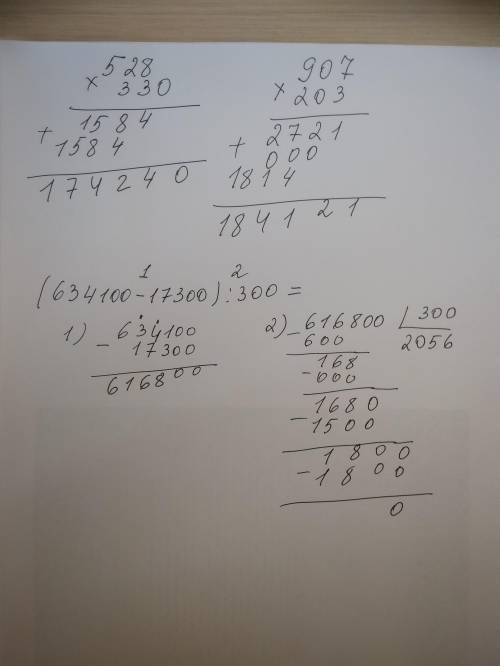 528
× 330
1584
+ 1584
174240
907
× 203
2721
+ 000
1814
184121
1 2
(634100-17300):300=
1) - 634100
17300
616800
2) - 616800 | 300
600 2056
168
- 000
1680
- 1500
1800
- 1800
0